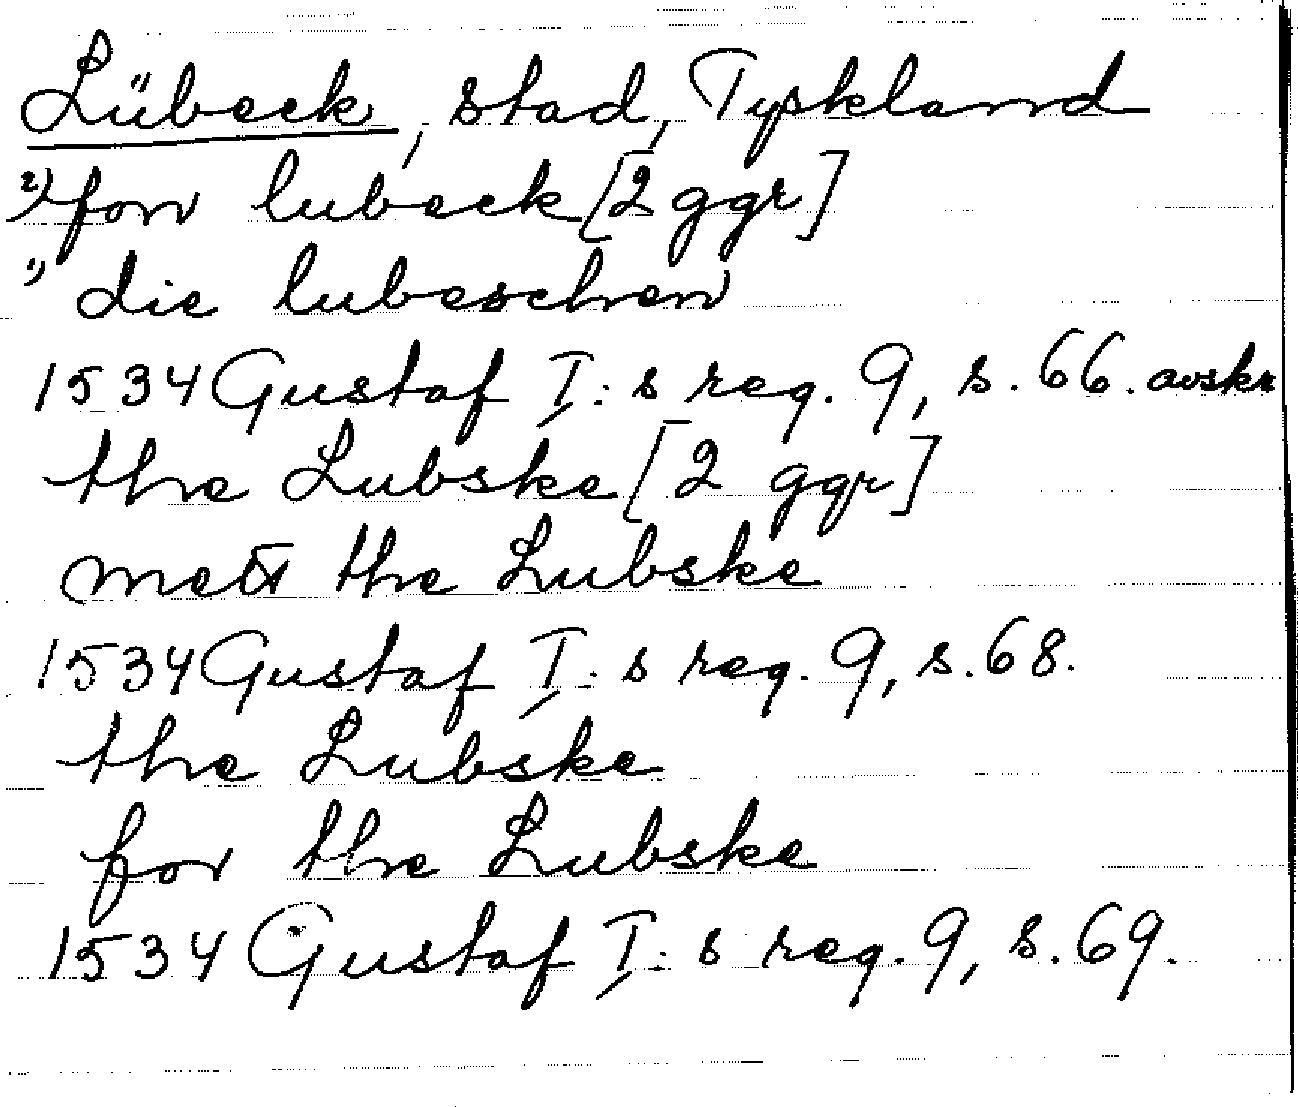 Lübeck, stad, Tyskland
2) fon lubeck [2 ggr]
1) die lubeschen
1534 Gustaf I:s reg. 9, s. 66. avskr
the Lubske [2 ggr]
mett the Lubske
1534 Gustaf I:s reg. 9, s. 68.
the Lubske
for the Lubske
1534 Gustaf I:s reg. 9, s. 69.